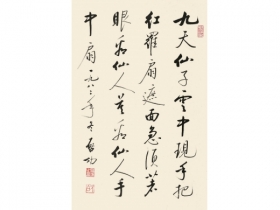 九天仙子雲中現手把
紅羅扇遮面急須著
眼看仙人莫看仙人手
中扇 一九八年冬 啟功